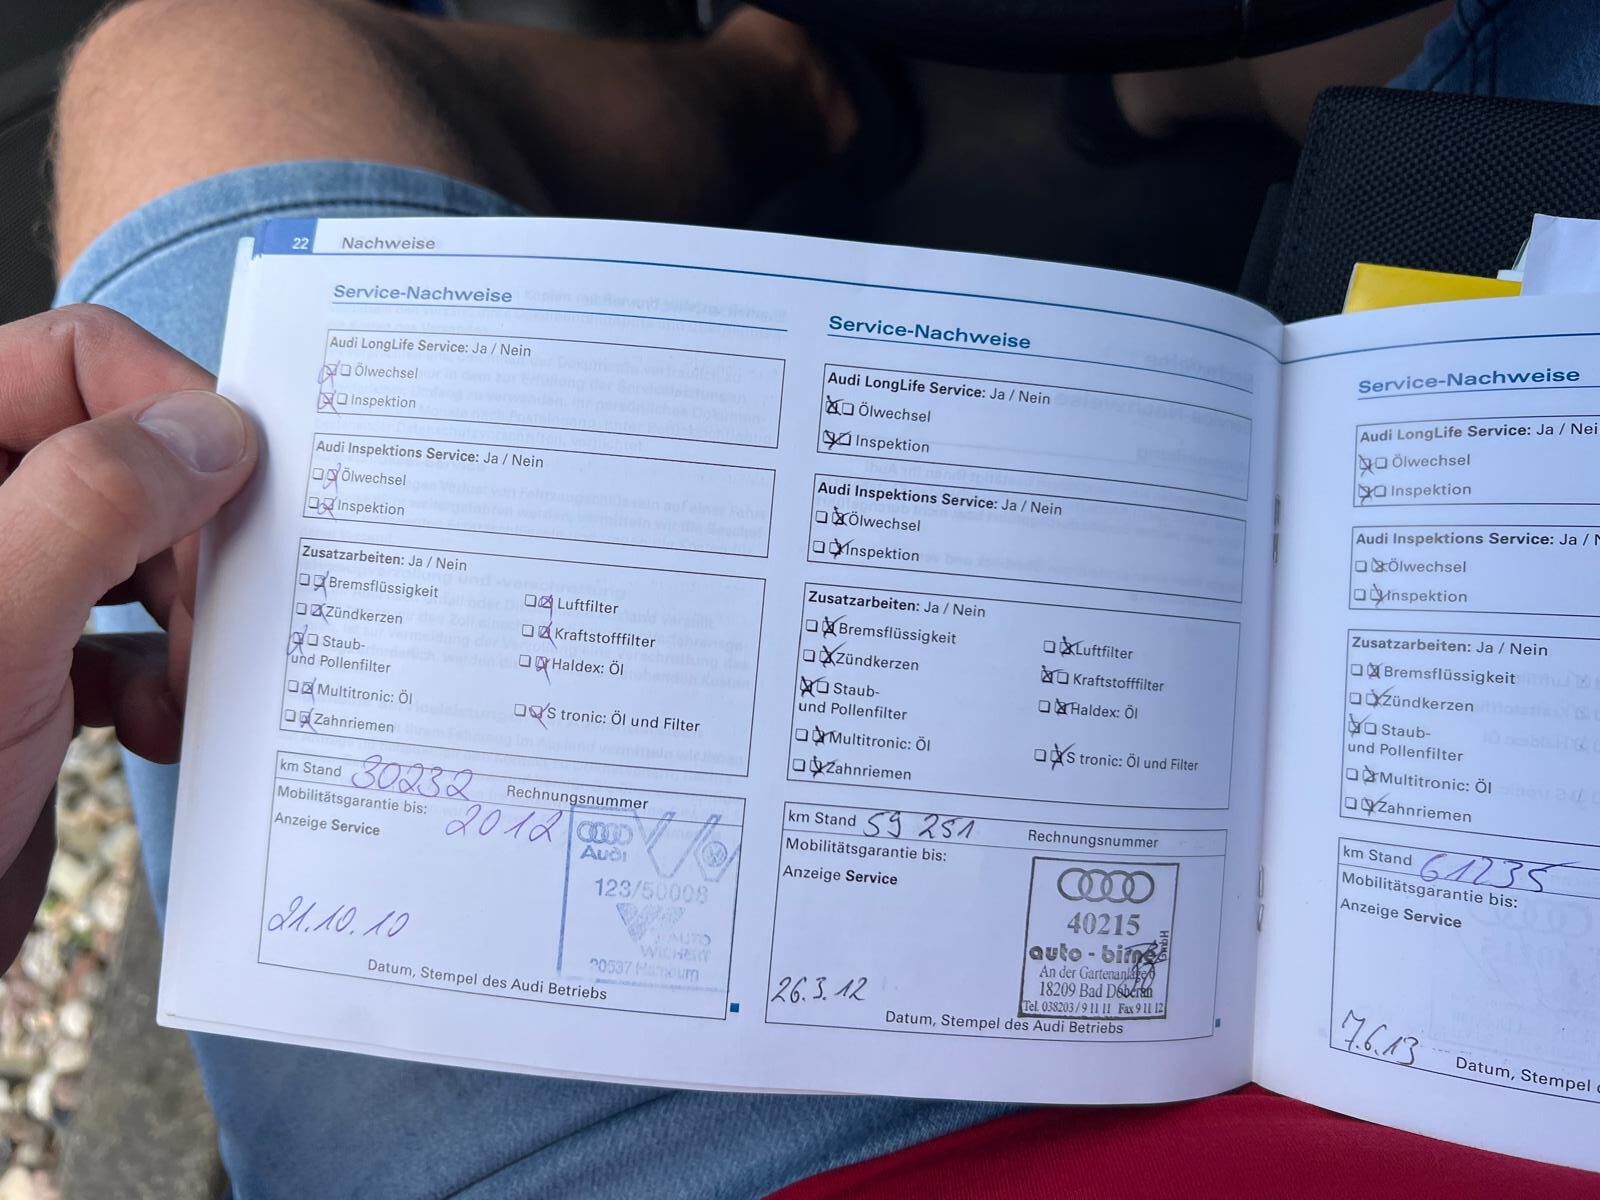 22 Nachweise
Service-Nachweise
Audi LongLife Service: Ja / Nein
Ölwechsel
Inspektion
Audi Inspektions Service: Ja / Nein
Ölwechsel
Inspektion
Zusatzarbeiten: Ja / Nein
Bremsflüssigkeit
Luftfilter
Zündkerzen
Kraftstofffilter
Staub-
und Pollenfilter
Haldex: Öl
Multitronic: Öl
S tronic: Öl und Filter
Zahnriemen
km Stand 30232 Rechnungsnummer
Mobilitätsgarantie bis: 2012
Anzeige Service
Audi
123/50008
AUTO
WICHERT
20537 Hamburg
21.10.10
Datum, Stempel des Audi Betriebs
Service-Nachweise
Audi LongLife Service: Ja / Nein
Ölwechsel
Inspektion
Audi Inspektions Service: Ja / Nein
Ölwechsel
Inspektion
Zusatzarbeiten: Ja / Nein
Bremsflüssigkeit
Luftfilter
Zündkerzen
Kraftstofffilter
Staub-
und Pollenfilter
Haldex: Öl
Multitronic: Öl
S tronic: Öl und Filter
Zahnriemen
km Stand 59 251 Rechnungsnummer
Mobilitätsgarantie bis:
Anzeige Service
40215
auto - birne GmbH
An der Gartenanlage 6
18209 Bad Doberan
Tel. 038203 / 9 11 11 Fax 9 11 12
26.3.12
Datum, Stempel des Audi Betriebs
Service-Nachweise
Audi LongLife Service: Ja / Nei
Ölwechsel
Inspektion
Audi Inspektions Service: Ja / N
Ölwechsel
Inspektion
Zusatzarbeiten: Ja / Nein
Bremsflüssigkeit
Zündkerzen
Staub-
und Pollenfilter
Multitronic: Öl
Zahnriemen
km Stand 61235
Mobilitätsgarantie bis:
Anzeige Service
7.6.13
Datum, Stempel